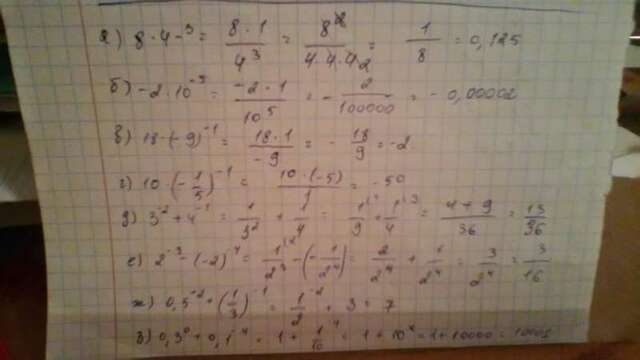 а) 8 · 4⁻³ = 8·1/4³ = 8²/4·4·4₂ = 1/8 = 0,125
б) -2 · 10⁻⁵ = -2·1/10⁵ = - 2/100000 = - 0,00002
в) 18 · (-9)⁻¹ = 18·1/-9 = - 18/9 = -2
г) 10 · (-1/5)⁻¹ = 10·(-5)/1 = -50
д) 3⁻² + 4⁻¹ = 1/3² + 1/4 = 1/9 + 1/4 = 4+9/36 = 13/36
е) 2⁻³ - (-2)⁻⁴ = 1/2³ - (-1/2⁴) = 2/2⁴ + 1/2⁴ = 3/2⁴ = 3/16
ж) 0,5⁻² + (1/3)⁻¹ = 1/2⁻² + 3 = 7
з) 0,3⁰ + 0,1⁻⁴ = 1 + 1/10⁻⁴ = 1 + 10⁴ = 1+10000 = 10001